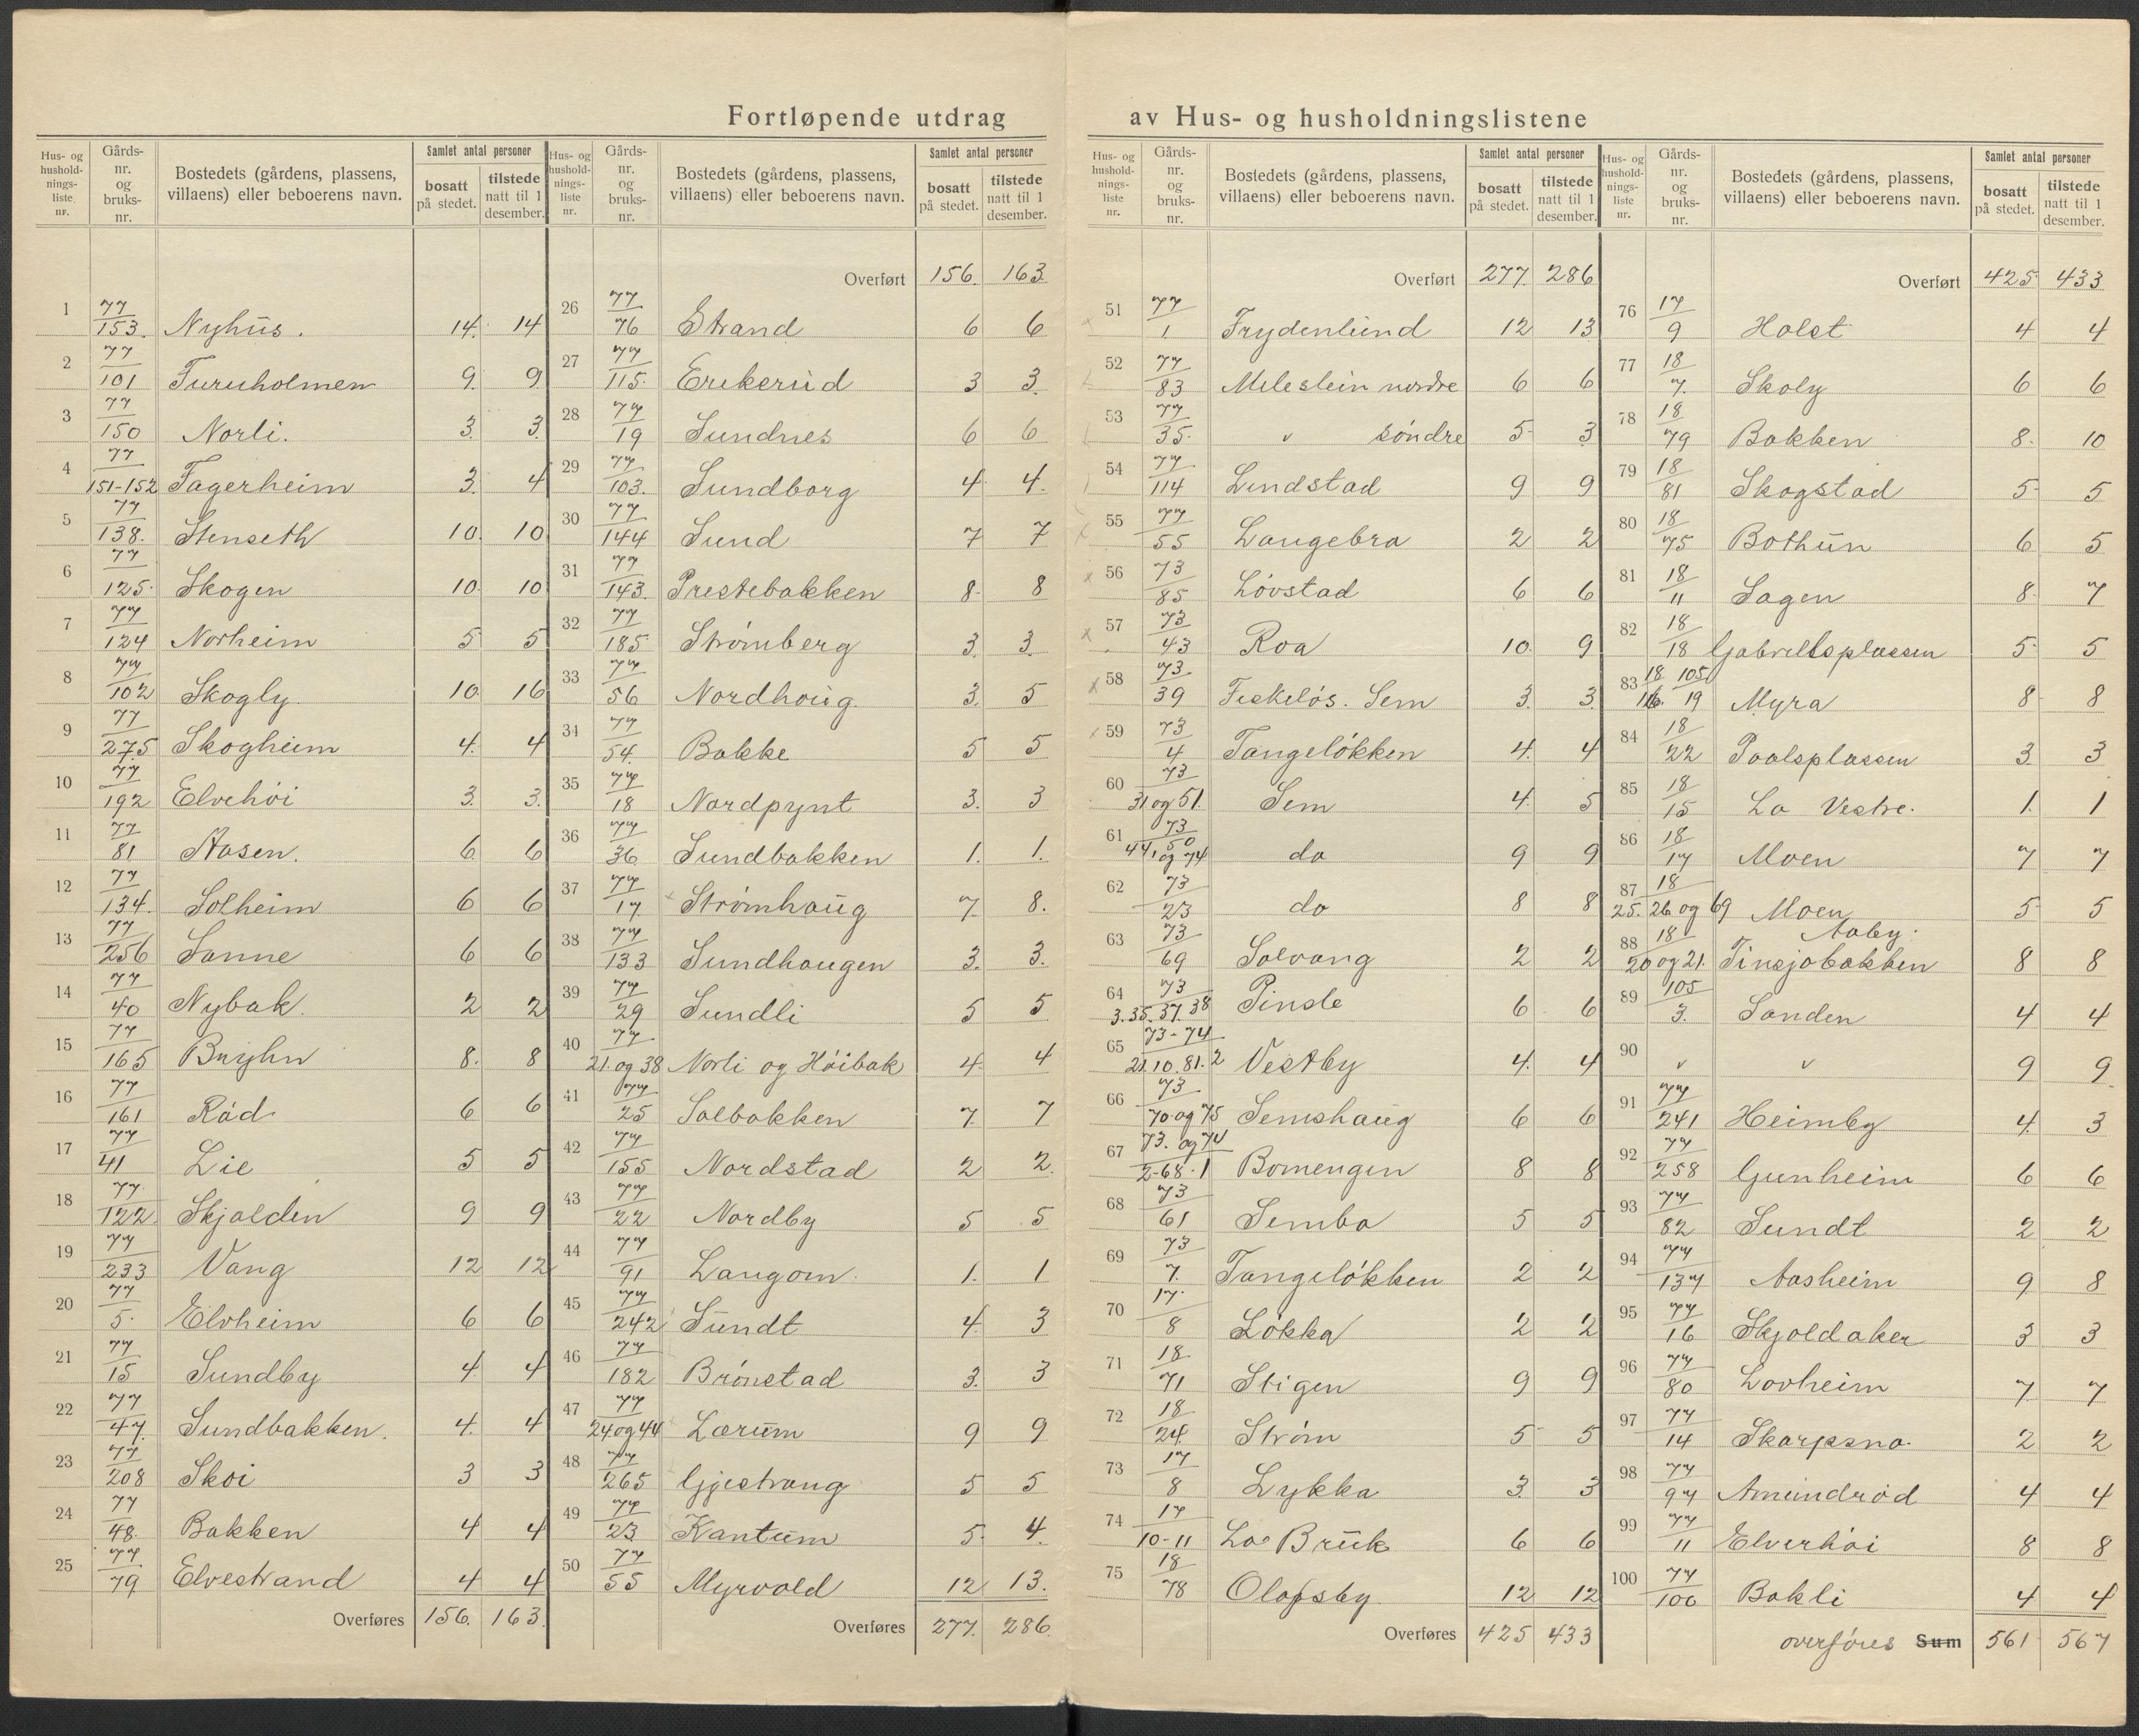 Fortløpende utdrag av Hus- og husholdningslistene
Hus- og hushold-nings-liste nr. Gårds-nr. og bruks-nr. Bostedets (gårdens, plassens, villaens) eller beboerens navn. Samlet antal personer bosatt på stedet. tilstede natt til 1 desember.
1 77/153. Nyhus. 14. 14
2 77/101 Furuholmen 9. 9
3 77/150 Norli. 3. 3
4 77/151-152 Fagerheim 3. 4
5 77/138. Stenseth 10. 10
6 77/125. Skogen 10. 10
7 77/124 Norheim 5 5
8 77/102 Skogly 10 16
9 77/275 Skogheim 4. 4
10 77/192 Elvehöi 3. 3.
11 77/81 Aasen. 6. 6
12 77/134. Solheim 6 6
13 77/256 Sanne 6 6
14 77/40 Nybak. 2 2
15 77/165 Bryhn 8. 8
16 77/161 Råd 6 6
17 77/41 Lie 5 5
18 77/122 Skjolden 9 9
19 77/233 Vang 12 12
20 77/5. Elvheim 6 6
21 77/15 Sundby 4. 4
22 77/47. Sundbakken. 4. 4
23 77/208 Skoi 3 3
24 77/48. Bakken 4 4
25 77/79 Elvestrand 4 4
Overføres 156. 163
Hus- og hushold-nings-liste nr. Gårds-nr. og bruks-nr. Bostedets (gårdens, plassens, villaens) eller beboerens navn. Samlet antal personer bosatt på stedet. tilstede natt til 1 desember.
Overført 156. 163.
26 77/76 Strand 6 6
27 77/115. Erikerud 3 3.
28 77/19 Sundnes 6 6
29 77/103. Sundborg 4 4.
30 77/144 Sund 7 7
31 77/143. Prestebakken 8. 8
32 77/185 Strømberg 3. 3.
33 77/56 Nordhoug. 3. 5
34 77/54. Bakke 5 5
35 77/18 Nordpynt 3. 3
36 77/36 Sundbakken 1. 1.
37 77/17 Strømhaug 7. 8.
38 77/133 Sundhaugen 3. 3.
39 77/29 Sundli 5 5
40 77/21. og 38 Norli og Höibak 4. 4
41 77/25 Solbakken 7. 7
42 77/155 Nordstad 2 2.
43 77/22 Nordby 5 5
44 77/91 Langom. 1. 1
45 77/242 Sundt 4. 3
46 77/182 Brönstad 3. 3
47 77/24 og 44 Lærum 9 9
48 77/265 Gjestvang 5 5
49 77/23 Kantum 5. 4.
50 77/55 Myrvold 12 13.
Overføres 277. 286.
Hus- og hushold-nings-liste nr. Gårds-nr. og bruks-nr. Bostedets (gårdens, plassens, villaens) eller beboerens navn. Samlet antal personer bosatt på stedet. tilstede natt til 1 desember.
Overført 277. 286
51 77/1. Frydenlund 12 13
52 77/83 Milestein nordre 6 6
53 77/35. " söndre 5 3
54 77/114 Lundstad 9 9
55 77/55 Langebra 2 2
x 56 73/85 Lövstad 6 6
x 57 73/43 Roa 10. 9
x 58 73/39 Feskelös. Sem 3. 3.
x 59 73/4 Tangelökken 4. 4
60 73/31 og 51. Sem 4. 5
61 73/44, 50 og 74 do 9 9
62 73/23 do 8 8
63 73/69 Solvang 2 2
64 73/3. 35. 37. 38 Pinsle 6 6
65 73-74/21. 10. 81. 2 Vestby 4. 4
66 73/70 og 75 Semshaug 6 6
67 73. og 74/2-68-1 Bomengen 8 8
68 73/61 Sembo 5 5
69 73/7. Tangelökken 2 2
70 17./8 Lökka 2 2
71 18./71 Stigen 9 9
72 18/24. Strøm 5 5
73 17/8 Lykka 3. 3
74 17/10-11 Lo Bruk 6 6
75 18/78 Olafsby 12 12
Overføres 425 433
Hus- og hushold-nings-liste nr. Gårds-nr. og bruks-nr. Bostedets (gårdens, plassens, villaens) eller beboerens navn. Samlet antal personer bosatt på stedet. tilstede natt til 1 desember.
Overført 425 433
76 17/9 Holst 4 4
77 18/7. Skoly 6 6
78 18/79 Bakken 8. 10
79 18/81 Skogstad 5 5
80 18/75 Bothun 6 5
81 18/11 Sagen 8. 7
82 18/18 Gabrielsplassen 5 5
83 18 105/116. 19 Myra 8 8
84 18/22 Paalsplassen 3 3
85 18/15 Lo Vestre. 1. 1
86 18/17 Moen 7 7
87 18/25. 26 og 69 Moen 5 5
Aaby.
88 18/20 og 21. Tinsjøbakken 8 8
89 105/3. Sanden 4 4
90 " " 9 9
91 77/241 Heimby 4. 3
92 77/258 Gunheim 6 6
93 77/82 Sundt 2 2
94 77/137 Aasheim 9 8
95 77/16 Skjoldaker 3 3
96 77/80 Lovheim 7 7
97 77/14 Skarpsno. 2 2
98 77/97 Amundröd 4 4
99 77/11 Elverhöi 8 8
100 77/100 Bakli 4 4
overføres Sum 561 567